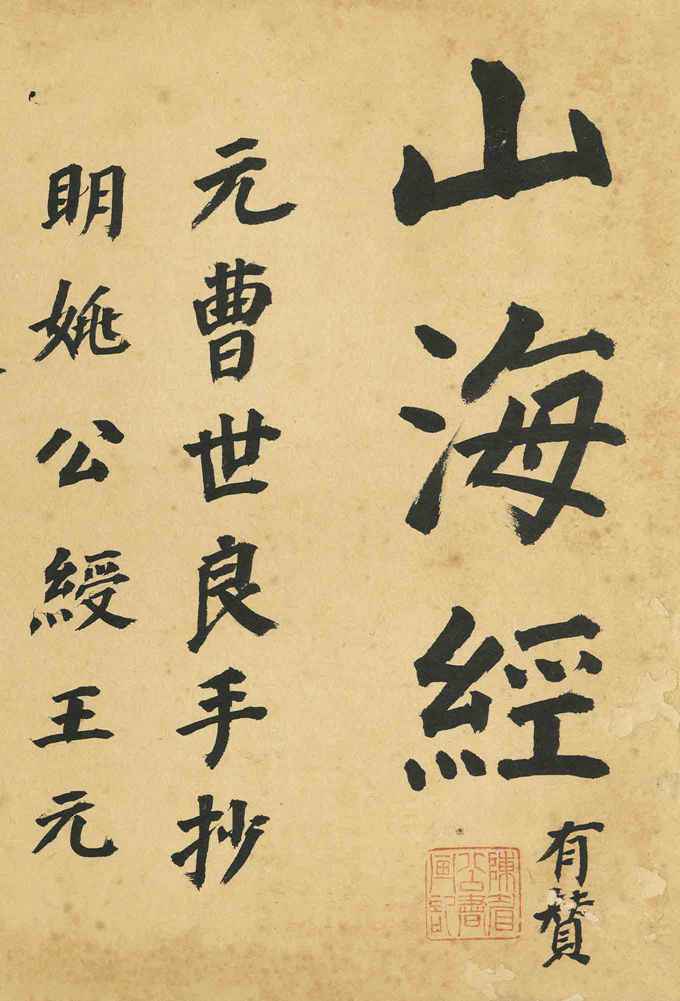 山海經
有贊
元曹世良手抄
明姚公綬王元